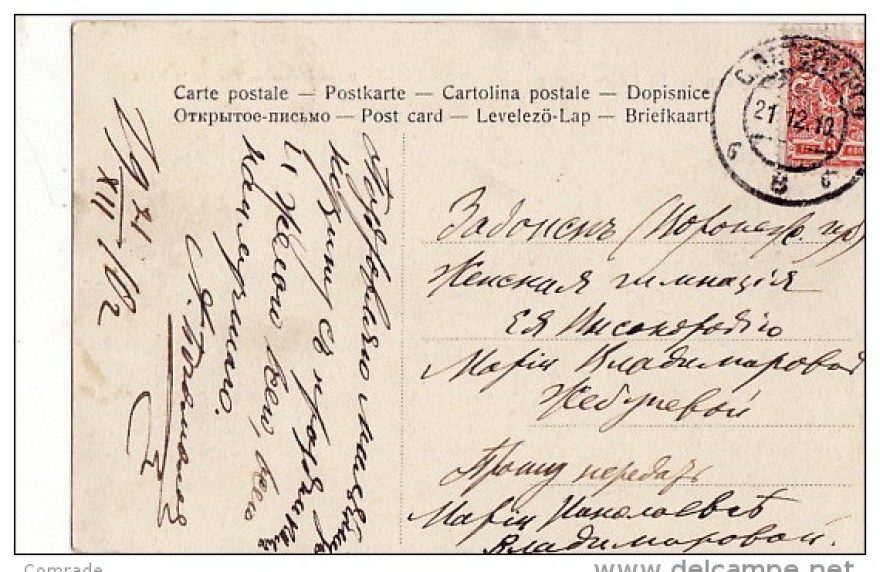 Carte postale — Postkarte — Cartolina postale — Dopisnice
Открытое-письмо — Post card — Levelező-Lap — Briefkaart
21 12 10
6
Задонскъ (Воронеж. гр)
Женская гимназія
Ея Высокородію
Маріи Владимировой
Жебуневой
Прошу передать
Маріи Николаевнѣ
Владимировой.
Поздравляю
съ праздникомъ
и желаю всего, всего
наилучшаго.
XII
Comrade
www.delcampe.net